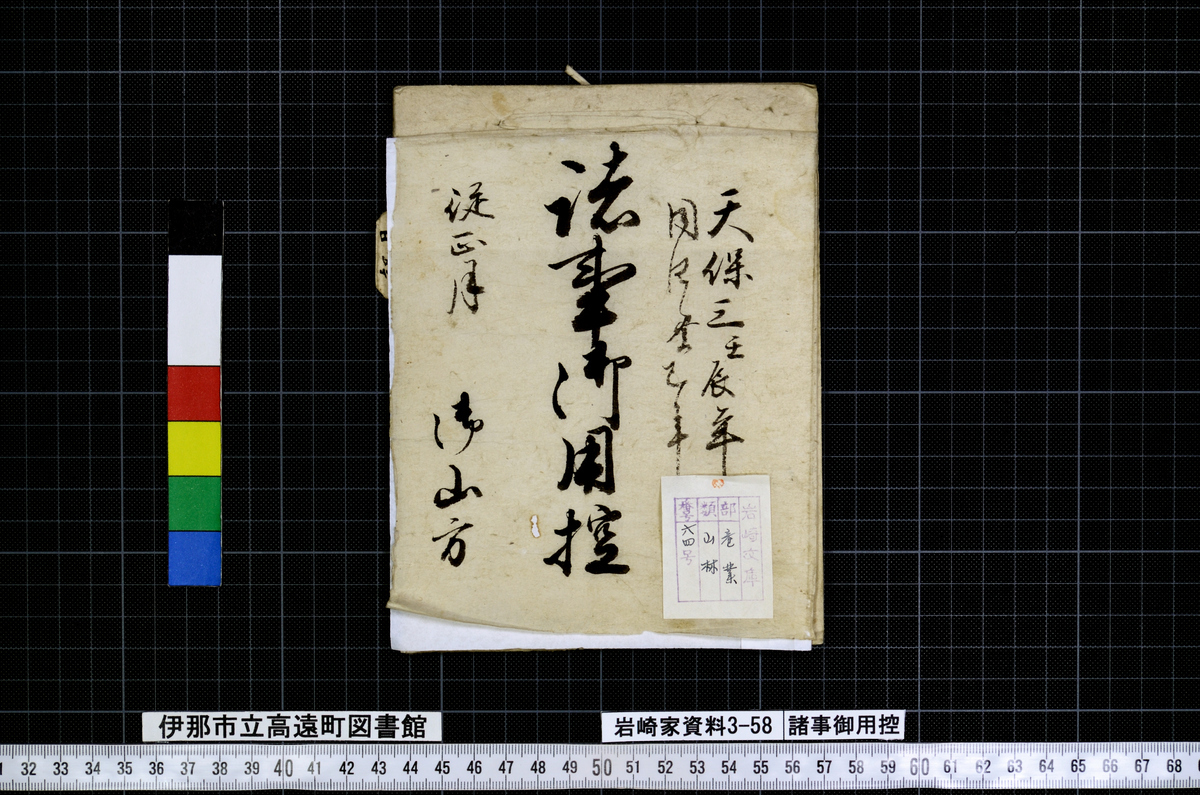 天保三壬辰年
同四癸巳年
諸事御用控
従正月
御山方
岩崎文庫
部 産業
類 山林
番号 六四号
伊那市立高遠町図書館
岩崎家資料3-58
諸事御用控
32 33 34 35 36 37 38 39 40 41 42 43 44 45 46 47 48 49 50 51 52 53 54 55 56 57 58 59 60 61 62 63 64 65 66 67 68